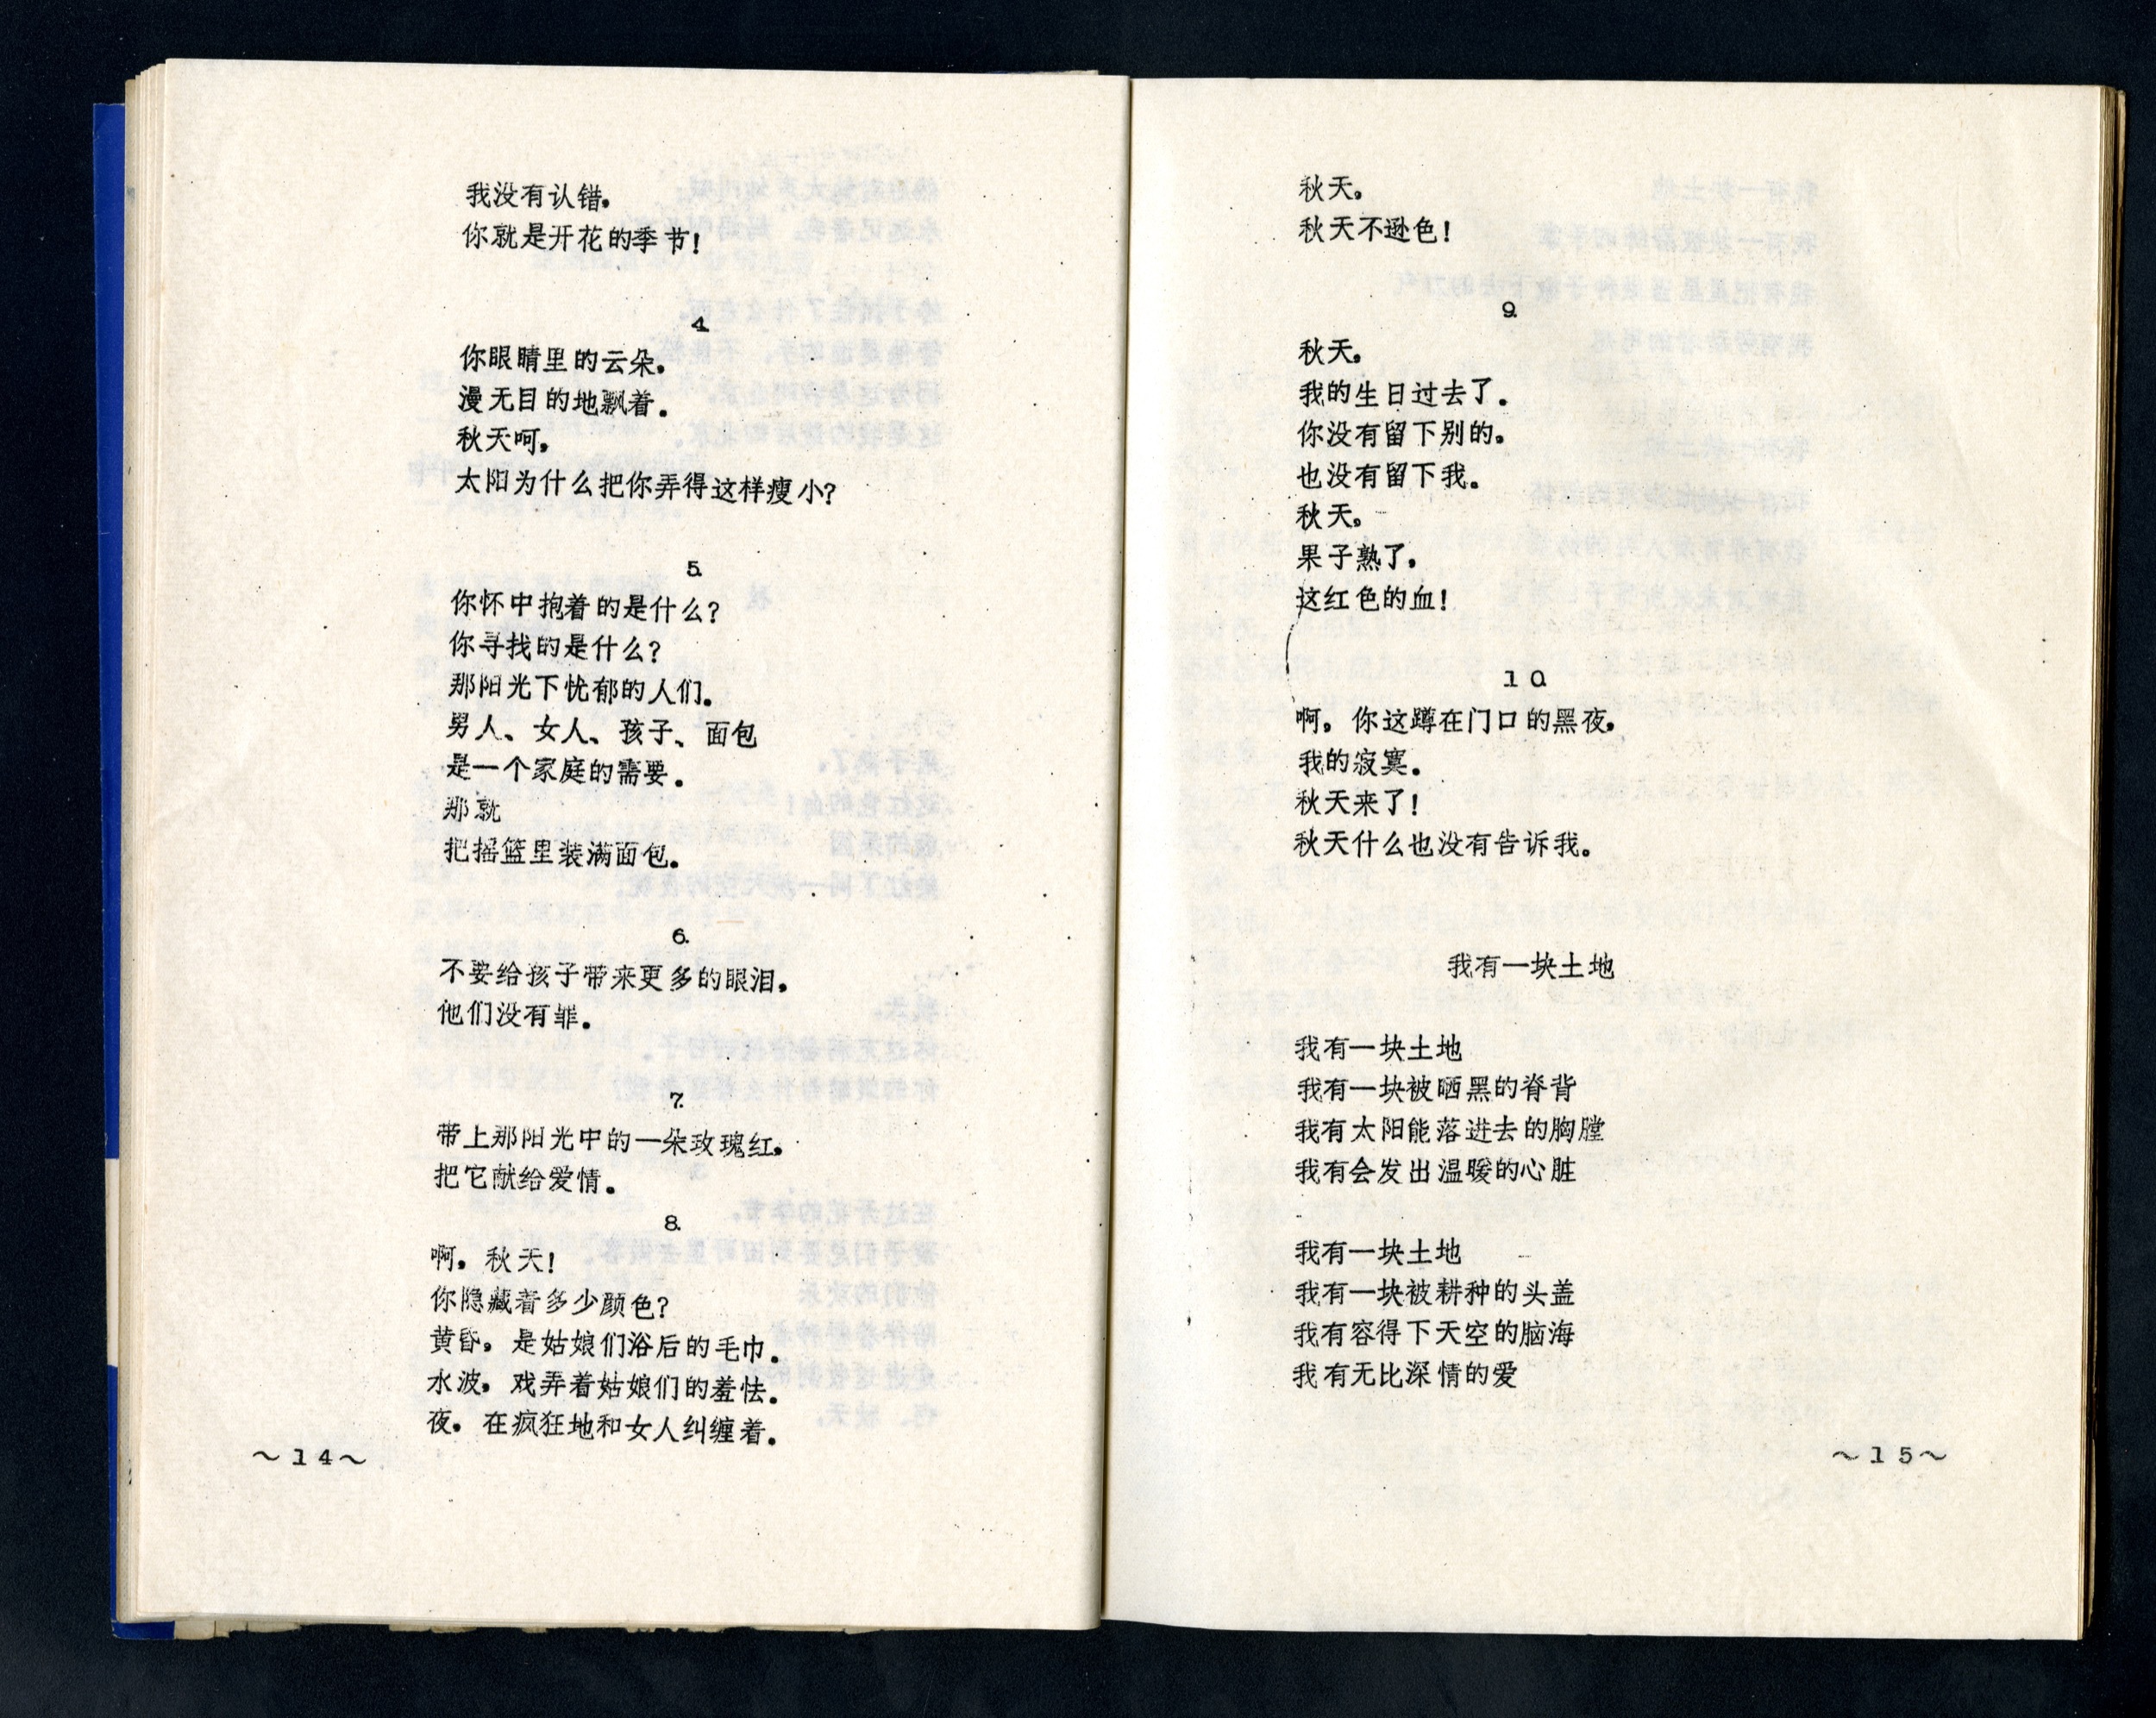 我没有认错，
你就是开花的季节！
4.
你眼睛里的云朵，
漫无目的地飘着．
秋天呵，
太阳为什么把你弄得这样瘦小？
5.
你怀中抱着的是什么？
你寻找的是什么？
那阳光下忧郁的人们。
男人、女人、孩子、面包
是一个家庭的需要．
那就
把摇篮里装满面包。
6.
不要给孩子带来更多的眼泪，
他们没有罪．
7.
带上那阳光中的一朵玫瑰红，
把它献给爱情．
8.
啊，秋天！
你隐藏着多少颜色？
黄昏，是姑娘们浴后的毛巾．
水波，戏弄着姑娘们的羞怯．
夜，在疯狂地和女人纠缠着．
～14～
秋天。
秋天不逊色！
9.
秋天，
我的生日过去了．
你没有留下别的。
也没有留下我。
秋天。
果子熟了，
这红色的血！
10.
啊，你这蹲在门口的黑夜，
我的寂寞．
秋天来了！
秋天什么也没有告诉我。
我有一块土地
我有一块土地
我有一块被晒黑的脊背
我有太阳能落进去的胸膛
我有会发出温暖的心脏
我有一块土地
我有一块被耕种的头盖
我有容得下天空的脑海
我有无比深情的爱
～15～